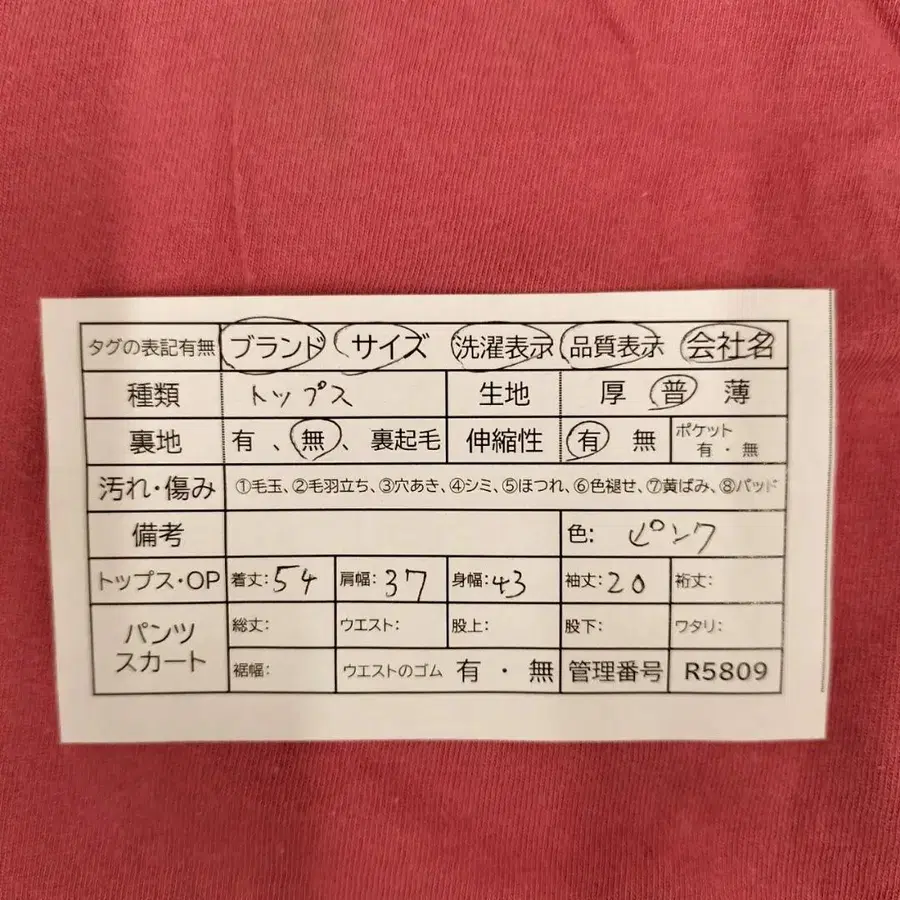 タグの表記有無 ブランド サイズ 洗濯表示 品質表示 会社名
種類 トップス 生地 厚 普 薄
裏地 有、無、裏起毛 伸縮性 有 無 ポケット 有・無
汚れ・傷み ①毛玉、②毛羽立ち、③穴あき、④シミ、⑤ほつれ、⑥色褪せ、⑦黄ばみ、⑧パッド
備考 色: ピンク
トップス・OP 着丈:54 肩幅:37 身幅:43 袖丈:20 裄丈:
パンツ スカート 総丈: ウエスト: 股上: 股下: ワタリ:
裾幅: ウエストのゴム 有・無 管理番号 R5809